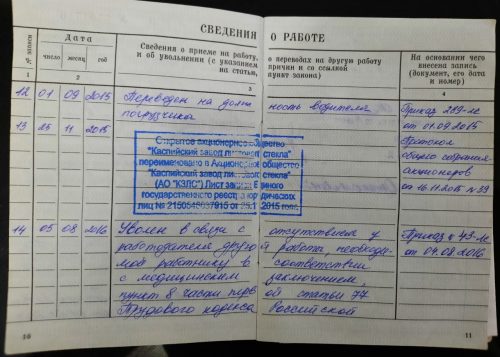 СВЕДЕНИЯ О РАБОТЕ
№ записи
Дата
число месяц год
Сведения о приеме на работу,
и об увольнении (с указанием
на статью,
о переводах на другую работу
причин и со ссылкой
пункт закона)
На основании чего
внесена запись
(документ, его дата
и номер)
1 2 3 4
12 01 09 2015 Переведен на долж ность водителя Приказ 239-лс
погрузчика от 01.09.2015
13 25 11 2015 Протокол
Открытое акционерное общество общего собрания
"Каспийский завод листового стекла" акционеров
переименовано в Акционерное общество от 16.11.2015 № 39
"Каспийский завод листового стекла"
(АО "КЗЛС") Лист записи Единого
государственного реестра юридических
лиц № 2150548037915 от 25.1 .2015 года.
14 05 08 2016 Уволен в связи с отсутствием у Приказ № 73-лс
работодателя друго й работы, необходи- от 04.08.2016
мой работнику в соответствии
с медицинским заключением,
пункт 8 части перв ой статьи 77
Трудового кодекса Российской
10 11